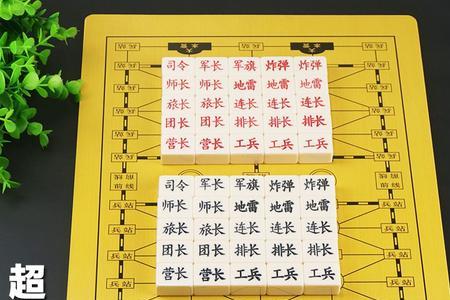 兵站
大本营
兵站
大本营
司令 军长 军旗 炸弹 炸弹
师长 师长 地雷 地雷 地雷
旅长 旅长 连长 连长 连长
团长 团长 排长 排长 排长
营长 营长 工兵 工兵 工兵
前线
前线
司令 军长 军旗 炸弹 炸弹
师长 师长 地雷 地雷 地雷
旅长 旅长 连长 连长 连长
团长 团长 排长 排长 排长
营长 营长 工兵 工兵 工兵
兵站
兵站
超